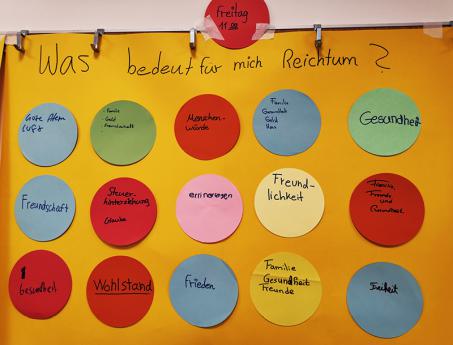 Freitag
Was bedeut für mich Reichtum?
Gute Atem
Luft
Familie
Geld
Freundschaft
Menschen-
würde
Familie
Gesundheit
Geld
Haus
Gesundheit
Freundschaft
Steuer-
hinterziehung
Glaube
errinerungen
Freund-
lichkeit
Familie,
Freunde
und
Gesundheit
Gesundheit
Wohlstand
Frieden
Familie
Gesundheit
Freunde
Freiheit